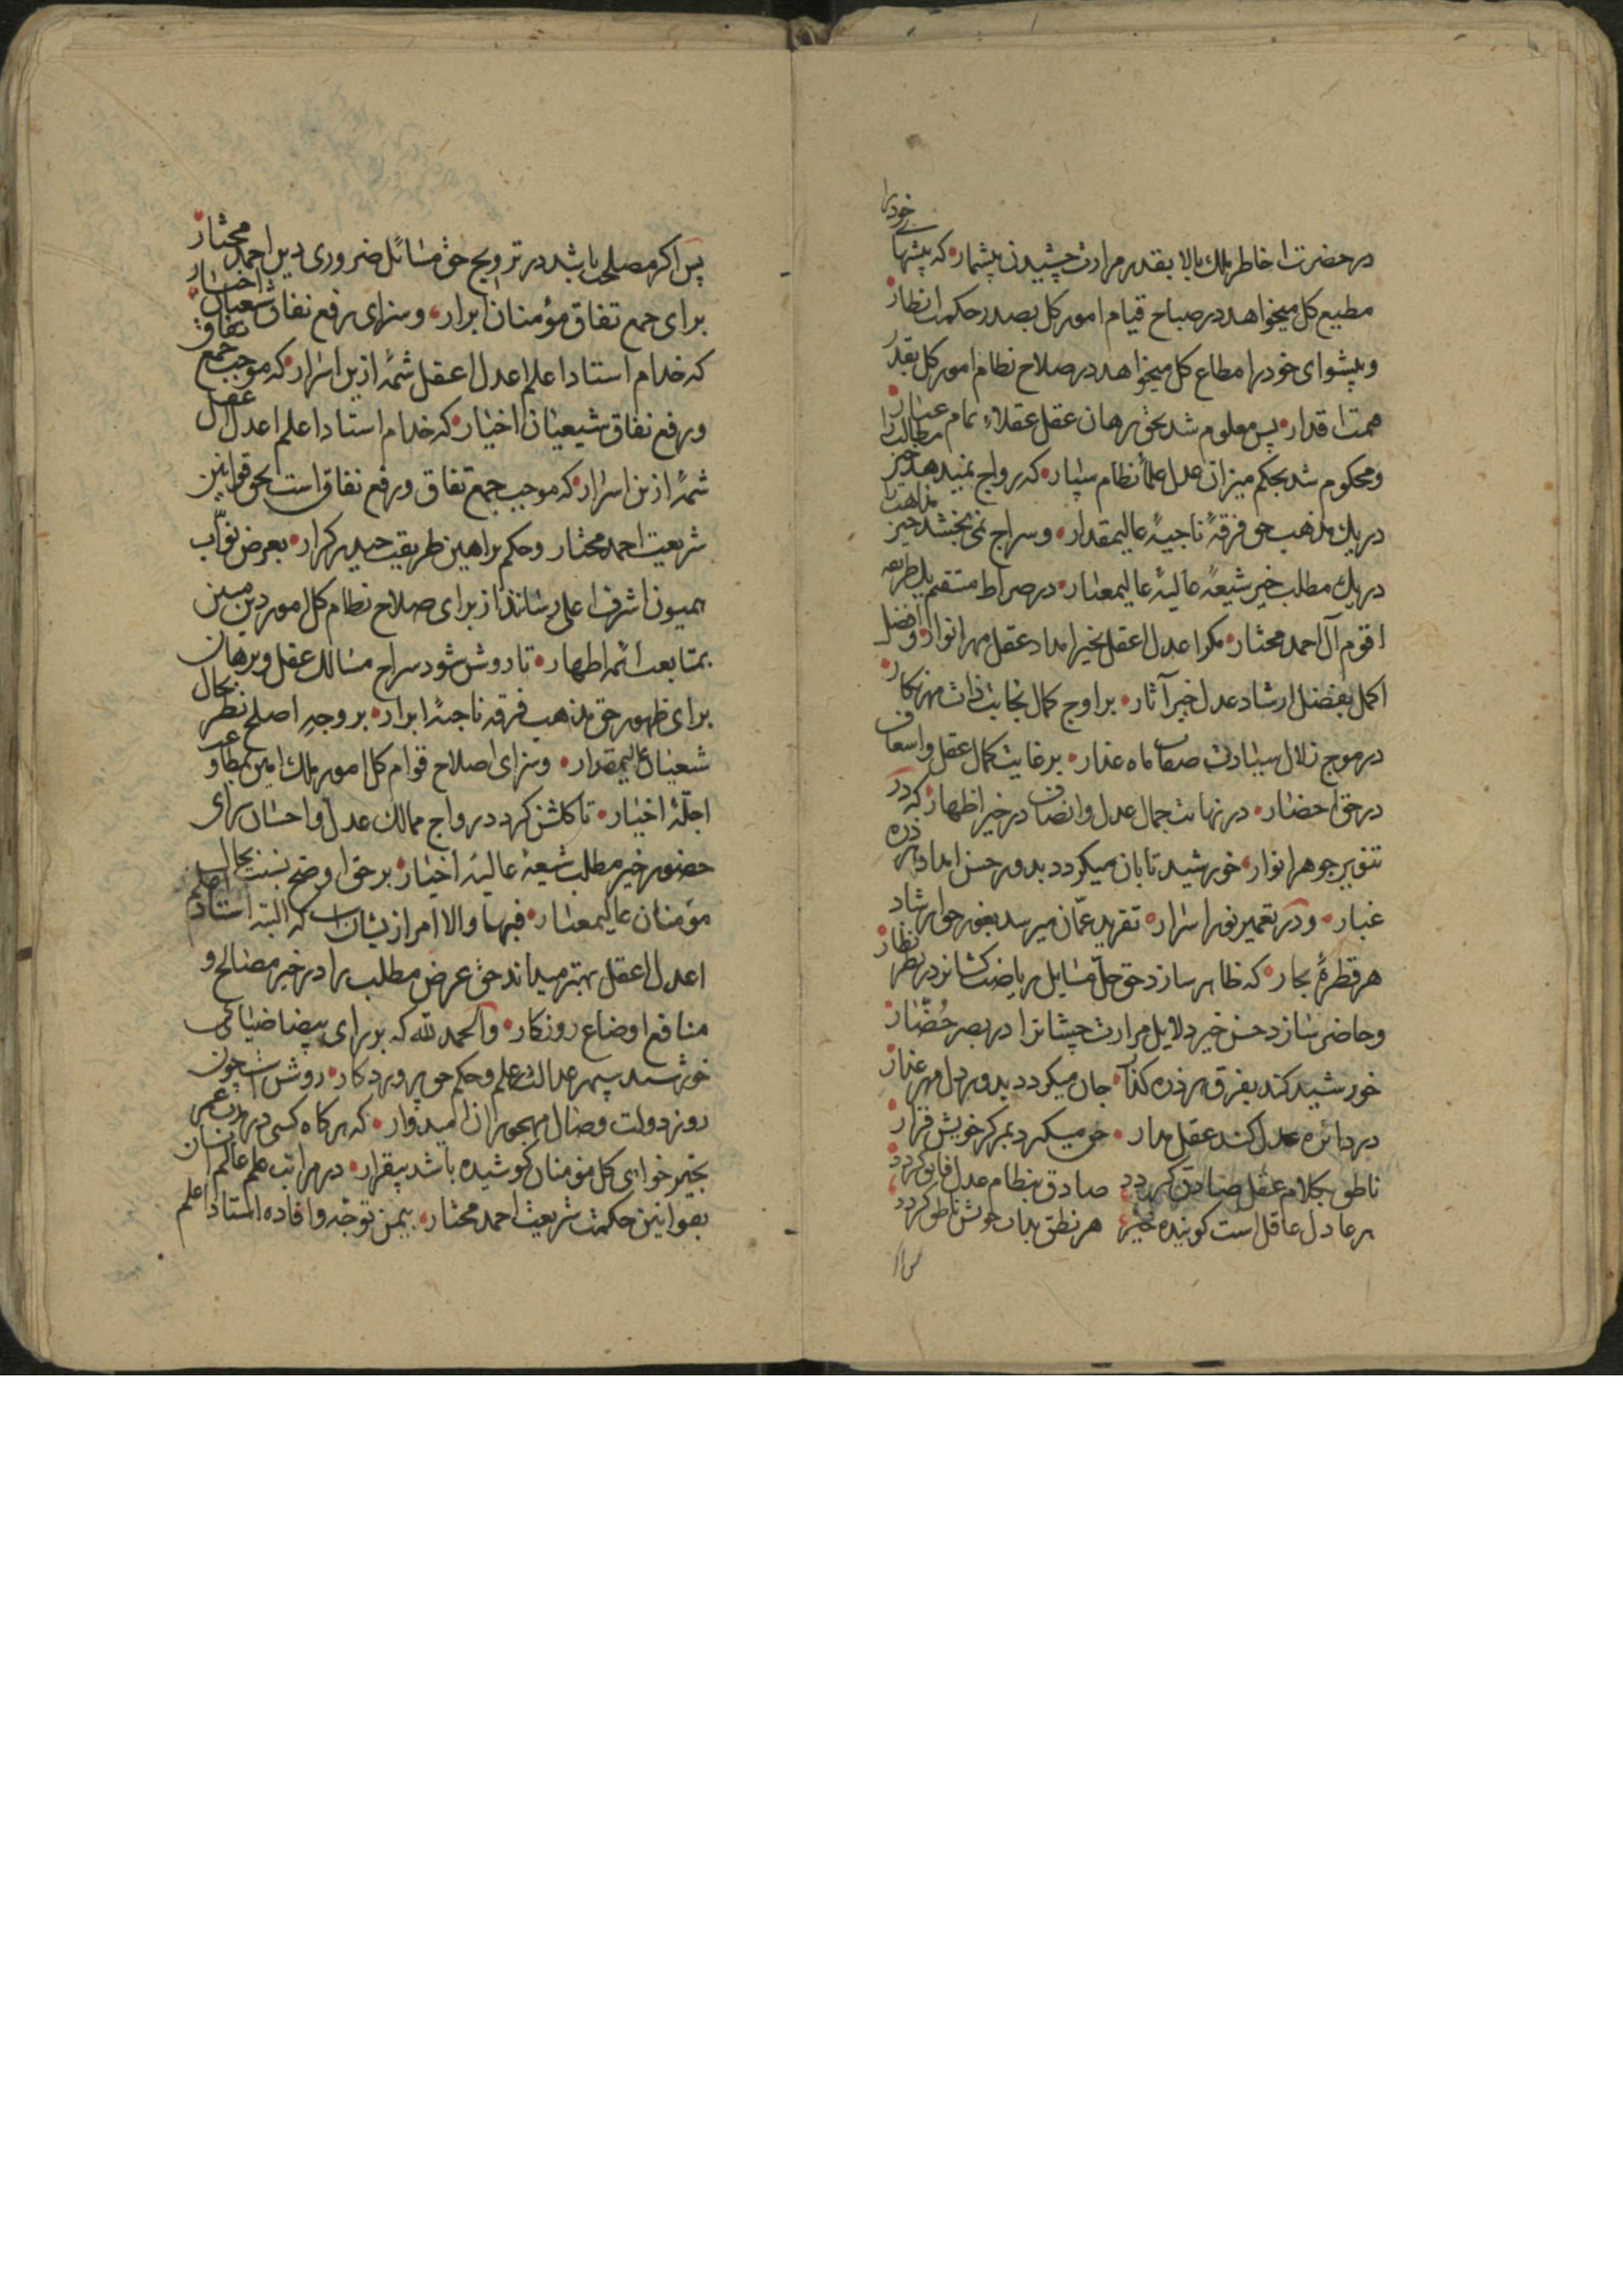 در حضرت احاطر ملك بالا بقدر مرارت چشیدن پیشمار که پیشهای خود را
مطیع کل میخواهد در صباح قیام امور کل بصدر حکمت انظار
و پیشوای خود را مطاع کل میخواهد در صلاح نظام امور کل بقدر
همت اقدار پس معلوم شد بحق برهان عقل عقلاء تمام عیار
و محکوم شد بحکم میزان عدل علماً نظام سپار که رواج نمیدهد خیر مطالب را
در یك مذهب حق فرقهٔ ناجیهٔ عالیمقدار و سراج نمی بخشد خیر مذاهب
در یك مطلب خیر شیعهٔ عالیهٔ عالیمعنار در صراط مستقیم یك طریقه
اقوم آل احمد مختار مکر اعدل اعقل بخیر امداد عقل مهر انوار و افضل
اکمل بفضل ارشاد عدل خیر آثار بر اوج کمال نجابت ذات مهر نکار
در موج زلال سیادت صفات ماه عذار بر غایت کمال عقل و اسعاف
در حق احضار در نهایت جمال عدل و انصاف در خیر اظهار که در
تنویر جوهر انوار خورشید تابان میکردد بدور حسن امداد هر ذره
غبار و در تعمیر نور اسرار تقرید عمّان میرسد بغور حق ارشاد
هر قطرهٔ بحار که ظاهر سازد حق حلّ مسایل ریاضت کشانرا در نظر نظار
و حاضر سازد حسن خیر دلایل مرارت چشانرا در بصر حُضّار
خورشید کند بفرق هر ذره کذار جان میکردد بدور دل مهر عذار
در دائره عدل کند عقل مدار حق میکردد بمرکز خویش قرار
ناطق بکلام عقل صادق کردد صادق بنظام عدل فارق کردد
هر عادل عاقل است کوینده خیر هر نطق بدات خویش ناطق کردد
پس
پس اکر مصلحت باشد در ترویج حق مسائل ضروری دین احمد مختار
برای جمع تفاق مؤمنان ابرار و سزای رفع نفاق شعیان اخیار
که خدام استاد اعلم اعدل اعقل شمهٔ ازین اسرار که موجب جمع تفاق
و رفع نفاق شیعیان اخیار که خدام استاد اعلم اعدل اعقل
شمهٔ ازین اسرار که موجب جمع تفاق و رفع نفاق است بحق قوانین
شریعت احمد مختار و حکم براهین طریقت حیدر کرار بعرض نوّاب
همیون اشرف اعلی رسانند از برای صلاح نظام کل امور دین مبین
بمتابعت ائمه اطهار تا روشن شود سراج مسالك عقل و برهان
برای ظهور حق مذهب فرقه ناجیهٔ ابرار بر وجه اصلح نظر بحال
شعیان عالیمقدار و سزای اصلاح قوام کل امور ملك امین بمطاوعت
اجلّهٔ اخیار تا کلشن کردد رواج ممالك عدل و احسان برای
حضور خیر مطلب شیعهٔ عالیهٔ اخیار بر حق اوضح بنسبت بحال
مؤمنان عالیمعنار فبها والا امر از یشان است که البته استاد اعلم
اعدل اعقل بهتر میداند حق عرض مطلب را در خیر مصالح و
منافع اوضاع روزکار و الحمد لله که بر رای بیضا ضیای
خورشید سپهر عدالت علم و حکم حق پروردکار روشن است چون
روز دولت وصال مهجوران امیدوار که هر کاه کسی در مدت عمر
بخیر خواهی کل مؤمنان کوشیده باشد بیقرار در مراتب علم عالم انسان
بقوانین حکمت شریعت احمد مختار بیمن توجه و افاده استاد اعلم